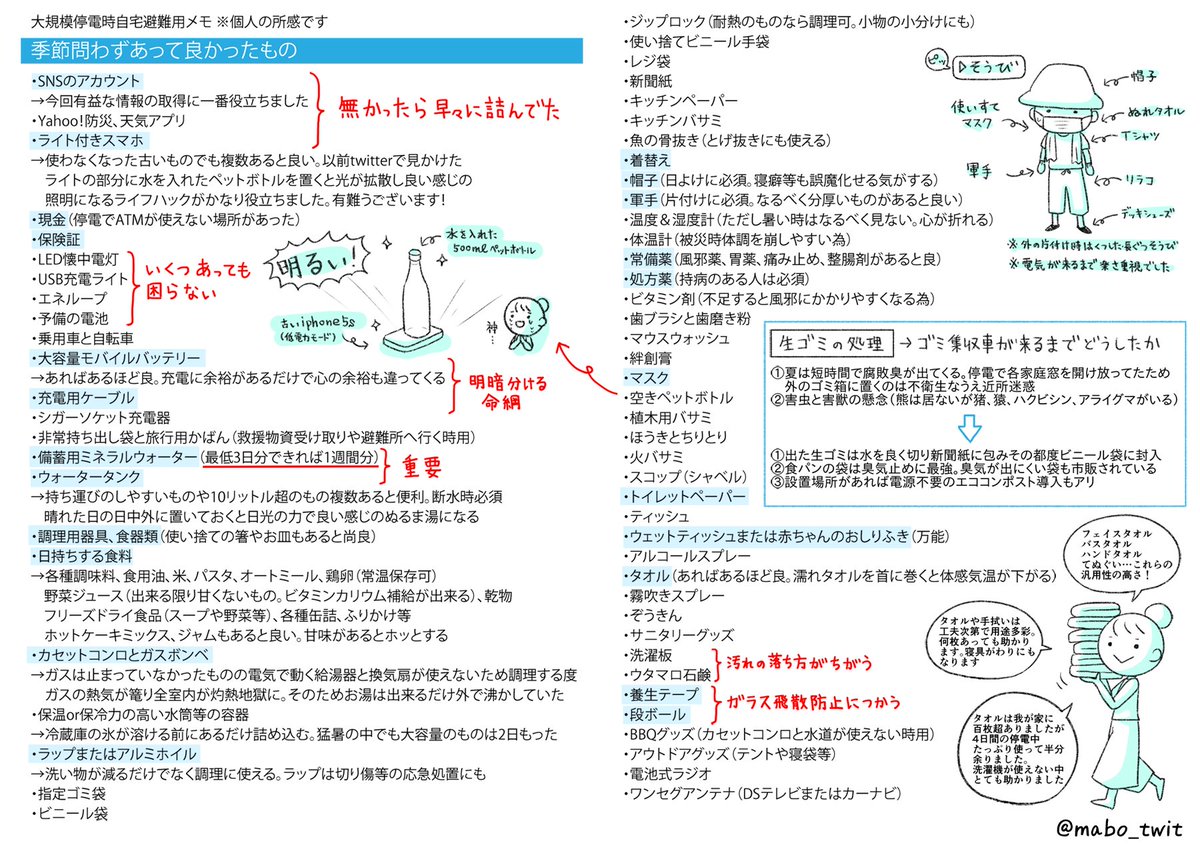 大規模停電時自宅避難用メモ ※個人の所感です
季節問わずあって良かったもの
・SNSのアカウント
→今回有益な情報の取得に一番役立ちました
・Yahoo!防災、天気アプリ
無かったら早々に詰んでた
・ライト付きスマホ
→使わなくなった古いものでも複数あると良い。以前twitterで見かけた
ライトの部分に水を入れたペットボトルを置くと光が拡散し良い感じの
照明になるライフハックがかなり役立ちました。有難うございます!
・現金(停電でATMが使えない場所があった)
・保険証
・LED懐中電灯
・USB充電ライト
・エネループ
・予備の電池
いくつあっても
困らない
明るい!
水を入れた
500mlペットボトル
古いiphone5s
(低電力モード)
神…
・乗用車と自転車
・大容量モバイルバッテリー
→あればあるほど良。充電に余裕があるだけで心の余裕も違ってくる
・充電用ケーブル
明暗分ける
命綱
・シガーソケット充電器
・非常持ち出し袋と旅行用かばん(救援物資受け取りや避難所へ行く時用)
・備蓄用ミネラルウォーター(最低3日分できれば1週間分)
・ウォータータンク
重要
→持ち運びのしやすいものや10リットル超のもの複数あると便利。断水時必須
晴れた日の日中外に置いておくと日光の力で良い感じのぬるま湯になる
・調理用器具、食器類(使い捨ての箸やお皿もあると尚良)
・日持ちする食料
→各種調味料、食用油、米、パスタ、オートミール、鶏卵(常温保存可)
野菜ジュース(出来る限り甘くないもの。ビタミンカリウム補給が出来る)、乾物
フリーズドライ食品(スープや野菜等)、各種缶詰、ふりかけ等
ホットケーキミックス、ジャムもあると良い。甘味があるとホッとする
・カセットコンロとガスボンベ
→ガスは止まっていなかったものの電気で動く給湯器と換気扇が使えないため調理する度
ガスの熱気が篭り全室内が灼熱地獄に。そのためお湯は出来るだけ外で沸かしていた
・保温or保冷力の高い水筒等の容器
→冷蔵庫の氷が溶ける前にあるだけ詰め込む。猛暑の中でも大容量のものは2日もった
・ラップまたはアルミホイル
→洗い物が減るだけでなく調理に使える。ラップは切り傷等の応急処置にも
・指定ゴミ袋
・ビニール袋
・ジップロック(耐熱のものなら調理可。小物の小分けにも)
・使い捨てビニール手袋
・レジ袋
・新聞紙
・キッチンペーパー
・キッチンバサミ
・魚の骨抜き(とげ抜きにも使える)
・着替え
・帽子(日よけに必須。寝癖等も誤魔化せる気がする)
・軍手(片付けに必須。なるべく分厚いものがあると良い)
・温度&湿度計(ただし暑い時はなるべく見ない。心が折れる)
・体温計(被災時体調を崩しやすい為)
・常備薬(風邪薬、胃薬、痛み止め、整腸剤があると良)
・処方薬(持病のある人は必須)
・ビタミン剤(不足すると風邪にかかりやすくなる為)
・歯ブラシと歯磨き粉
・マウスウォッシュ
・絆創膏
・マスク
・空きペットボトル
・植木用バサミ
・ほうきとちりとり
・火バサミ
・スコップ(シャベル)
・トイレットペーパー
・ティッシュ
・ウェットティッシュまたは赤ちゃんのおしりふき(万能)
・アルコールスプレー
・タオル(あればあるほど良。濡れタオルを首に巻くと体感気温が下がる)
・霧吹きスプレー
・ぞうきん
・サニタリーグッズ
・洗濯板
・ウタマロ石鹸
汚れの落ち方がちがう
・養生テープ
・段ボール
ガラス飛散防止につかう
・BBQグッズ(カセットコンロと水道が使えない時用)
・アウトドアグッズ(テントや寝袋等)
・電池式ラジオ
・ワンセグアンテナ(DSテレビまたはカーナビ)
ピッ
▷そうび
帽子
使いすて
マスク
ぬれタオル
Tシャツ
軍手
リラコ
デッキシューズ
※外の片付け時はくつした長ぐつそうび
※電気が来るまで楽さ重視でした
生ゴミの処理→ゴミ集収車が来るまでどうしたか
①夏は短時間で腐敗臭が出てくる。停電で各家庭窓を開け放ってたため
外のゴミ箱に置くのは不衛生なうえ近所迷惑
②害虫と害獣の懸念(熊は居ないが猪、猿、ハクビシン、アライグマがいる)
①出た生ゴミは水を良く切り新聞紙に包みその都度ビニール袋に封入
②食パンの袋は臭気止めに最強。臭気が出にくい袋も市販されている
③設置場所があれば電源不要のエココンポスト導入もアリ
フェイスタオル
バスタオル
ハンドタオル
てぬぐい…これらの
汎用性の高さ!
タオルや手拭いは
工夫次第で用途多彩。
何枚あっても助かり
ます。寝具がわりにも
なります
タオルは我が家に
百枚超ありましたが
4日間の停電中
たっぷり使って半分
余りました。
洗濯機が使えない中
とても助かりました
@mabo_twit